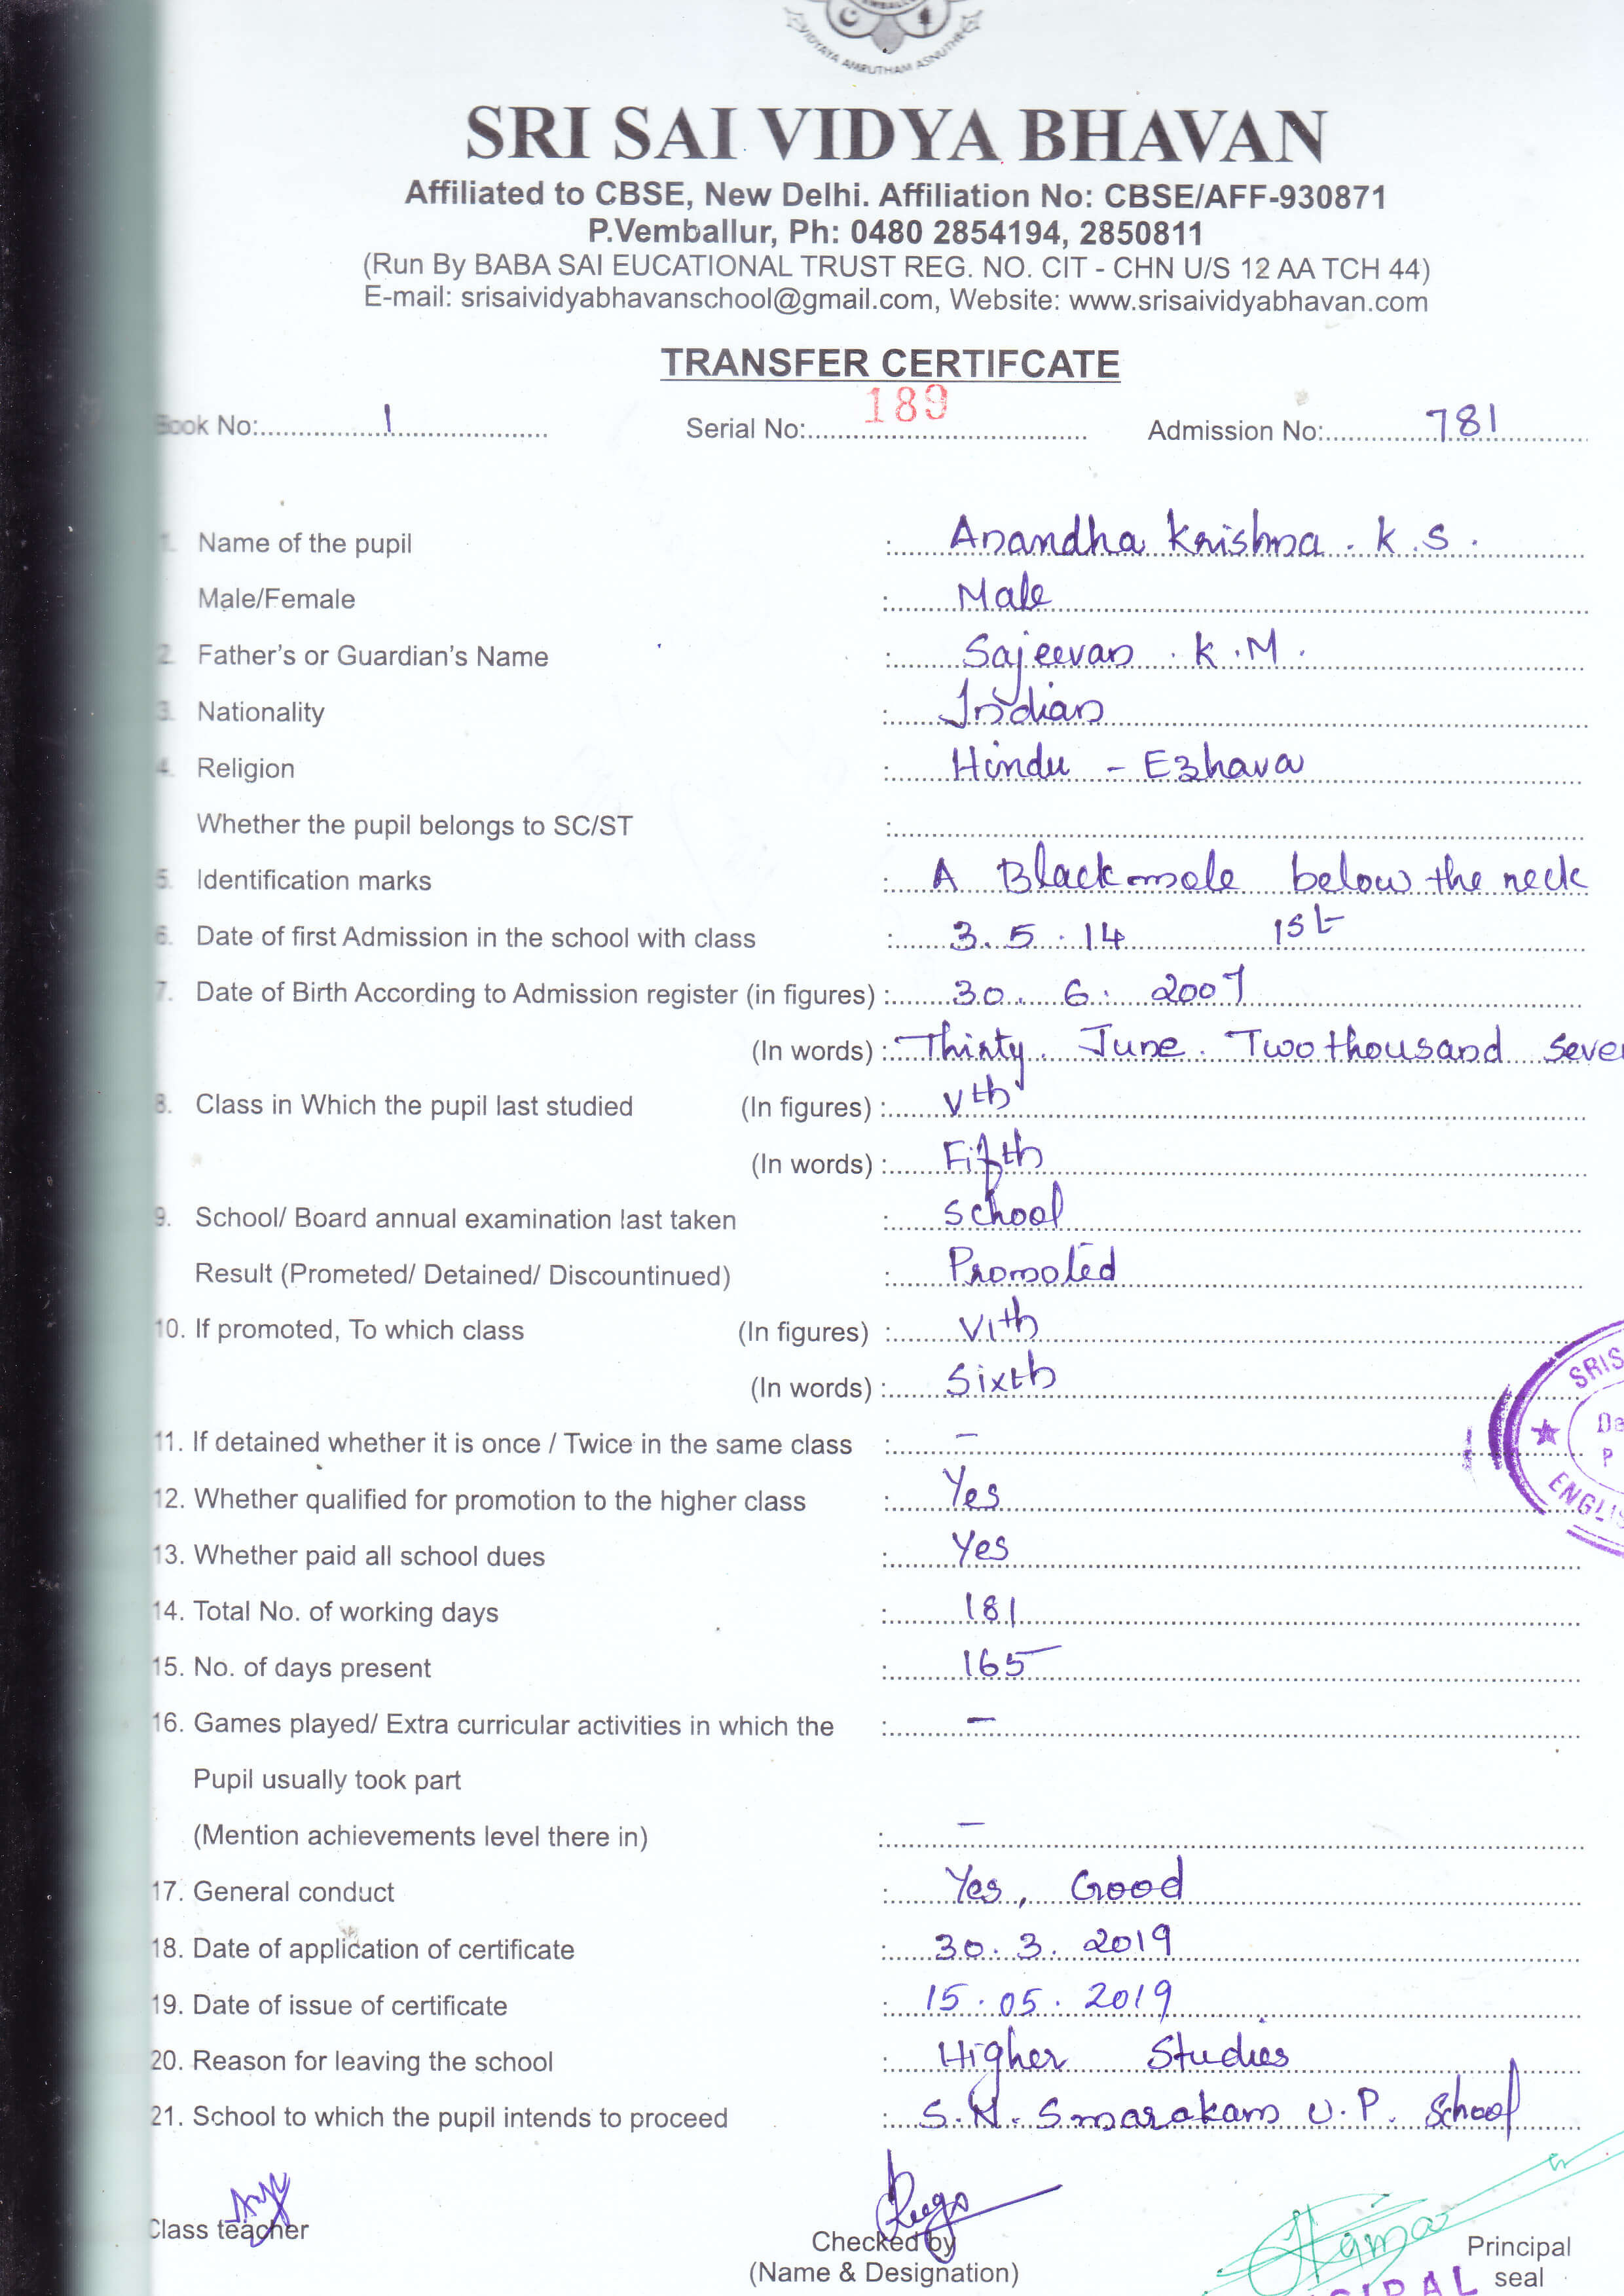 VIDYAYA AMRUTHAM ASNUTHE
SRI SAI VIDYA BHAVAN
Affiliated to CBSE, New Delhi. Affiliation No: CBSE/AFF-930871
P.Vemballur, Ph: 0480 2854194, 2850811
(Run By BABA SAI EUCATIONAL TRUST REG. NO. CIT - CHN U/S 12 AA TCH 44)
E-mail: srisaividyabhavanschool@gmail.com, Website: www.srisaividyabhavan.com
TRANSFER CERTIFCATE
Book No: 1 Serial No: 189 Admission No: 781
1. Name of the pupil : Anandha Krishna . K . S .
Male/Female : Male
2. Father's or Guardian's Name : Sajeevan . K . M .
3. Nationality : Indian
4. Religion : Hindu - Ezhava
Whether the pupil belongs to SC/ST :
5. Identification marks : A Black mole below the neck
6. Date of first Admission in the school with class : 3. 5 . 14 1st
7. Date of Birth According to Admission register (in figures) : 30. 6. 2007
(In words) : Thirty. June. Two thousand seve
8. Class in Which the pupil last studied (In figures) : Vth
(In words) : Fifth
9. School/ Board annual examination last taken : school
Result (Prometed/ Detained/ Discountinued) : Promoted
10. If promoted, To which class (In figures) : VIth
(In words) : Sixth
11. If detained whether it is once / Twice in the same class : –
12. Whether qualified for promotion to the higher class : Yes
13. Whether paid all school dues : Yes
14. Total No. of working days : 181
15. No. of days present : 165
16. Games played/ Extra curricular activities in which the : –
Pupil usually took part
(Mention achievements level there in) : –
17. General conduct : Yes, Good
18. Date of application of certificate : 30. 3. 2019
19. Date of issue of certificate : 15 . 05 . 2019
20. Reason for leaving the school : Higher Studies
21. School to which the pupil intends to proceed : S.N. Smarakam U.P. School
SRIS
Da
P
ENGLIS
Class teacher
Checked by
(Name & Designation)
Principal
seal
CIPAL